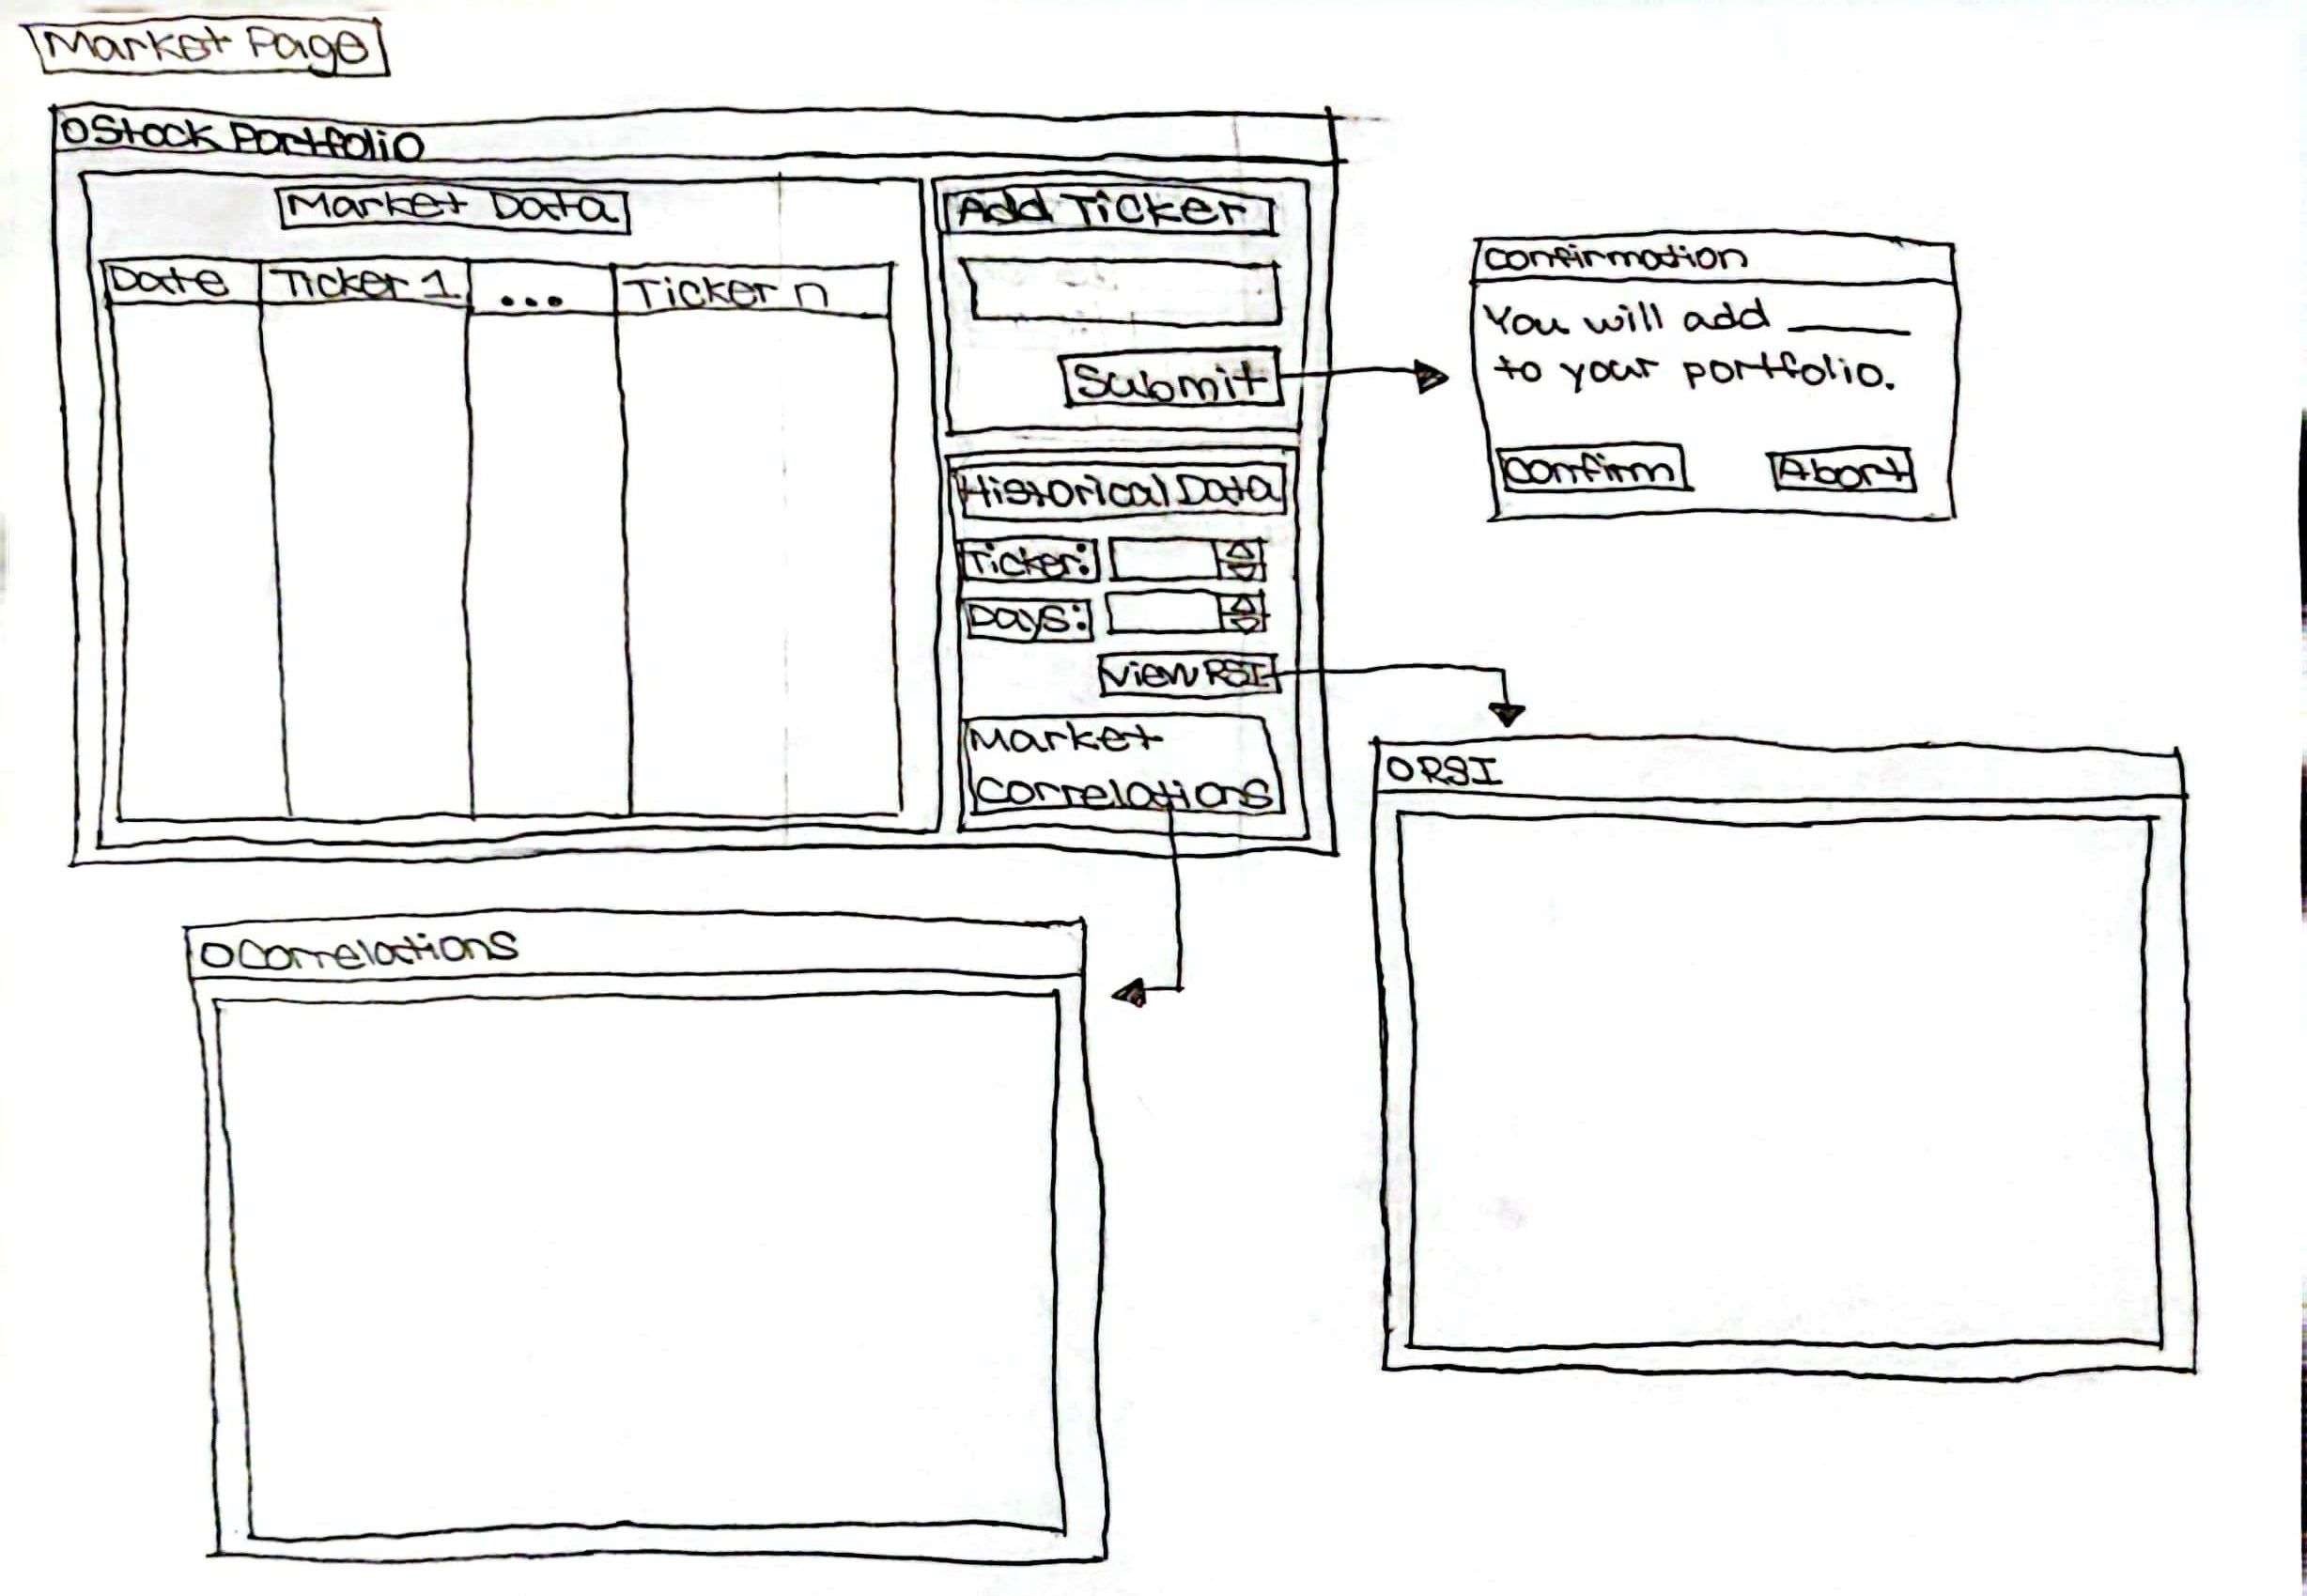 Market Page
Stock Portfolio
Market Data
Date Ticker 1 ... Ticker n
Add Ticker
Submit
Historical Data
Ticker:
Days:
View RSI
Market
Correlations
Confirmation
You will add ____
to your portfolio.
Confirm Abort
RSI
Correlations